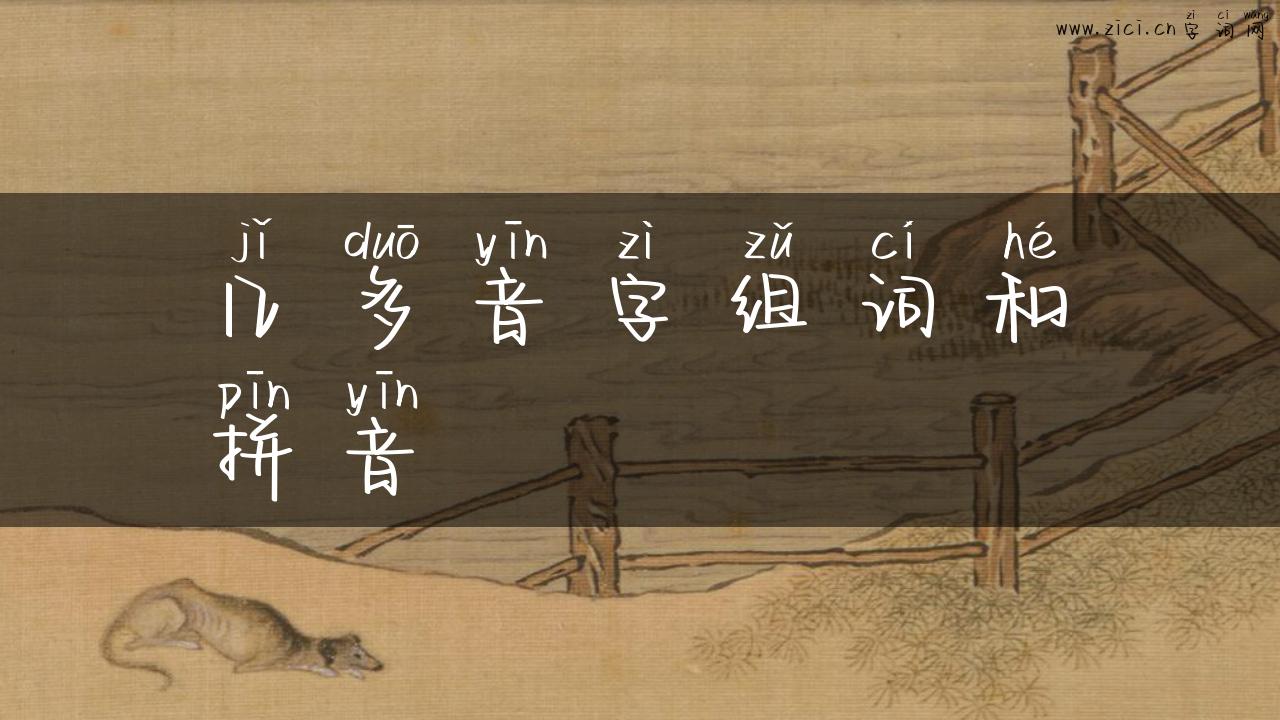 zì cí wǎng
www.zici.cn 字词网
jǐ duō yīn zì zǔ cí hé
几多音字组词和
pīn yīn
拼音